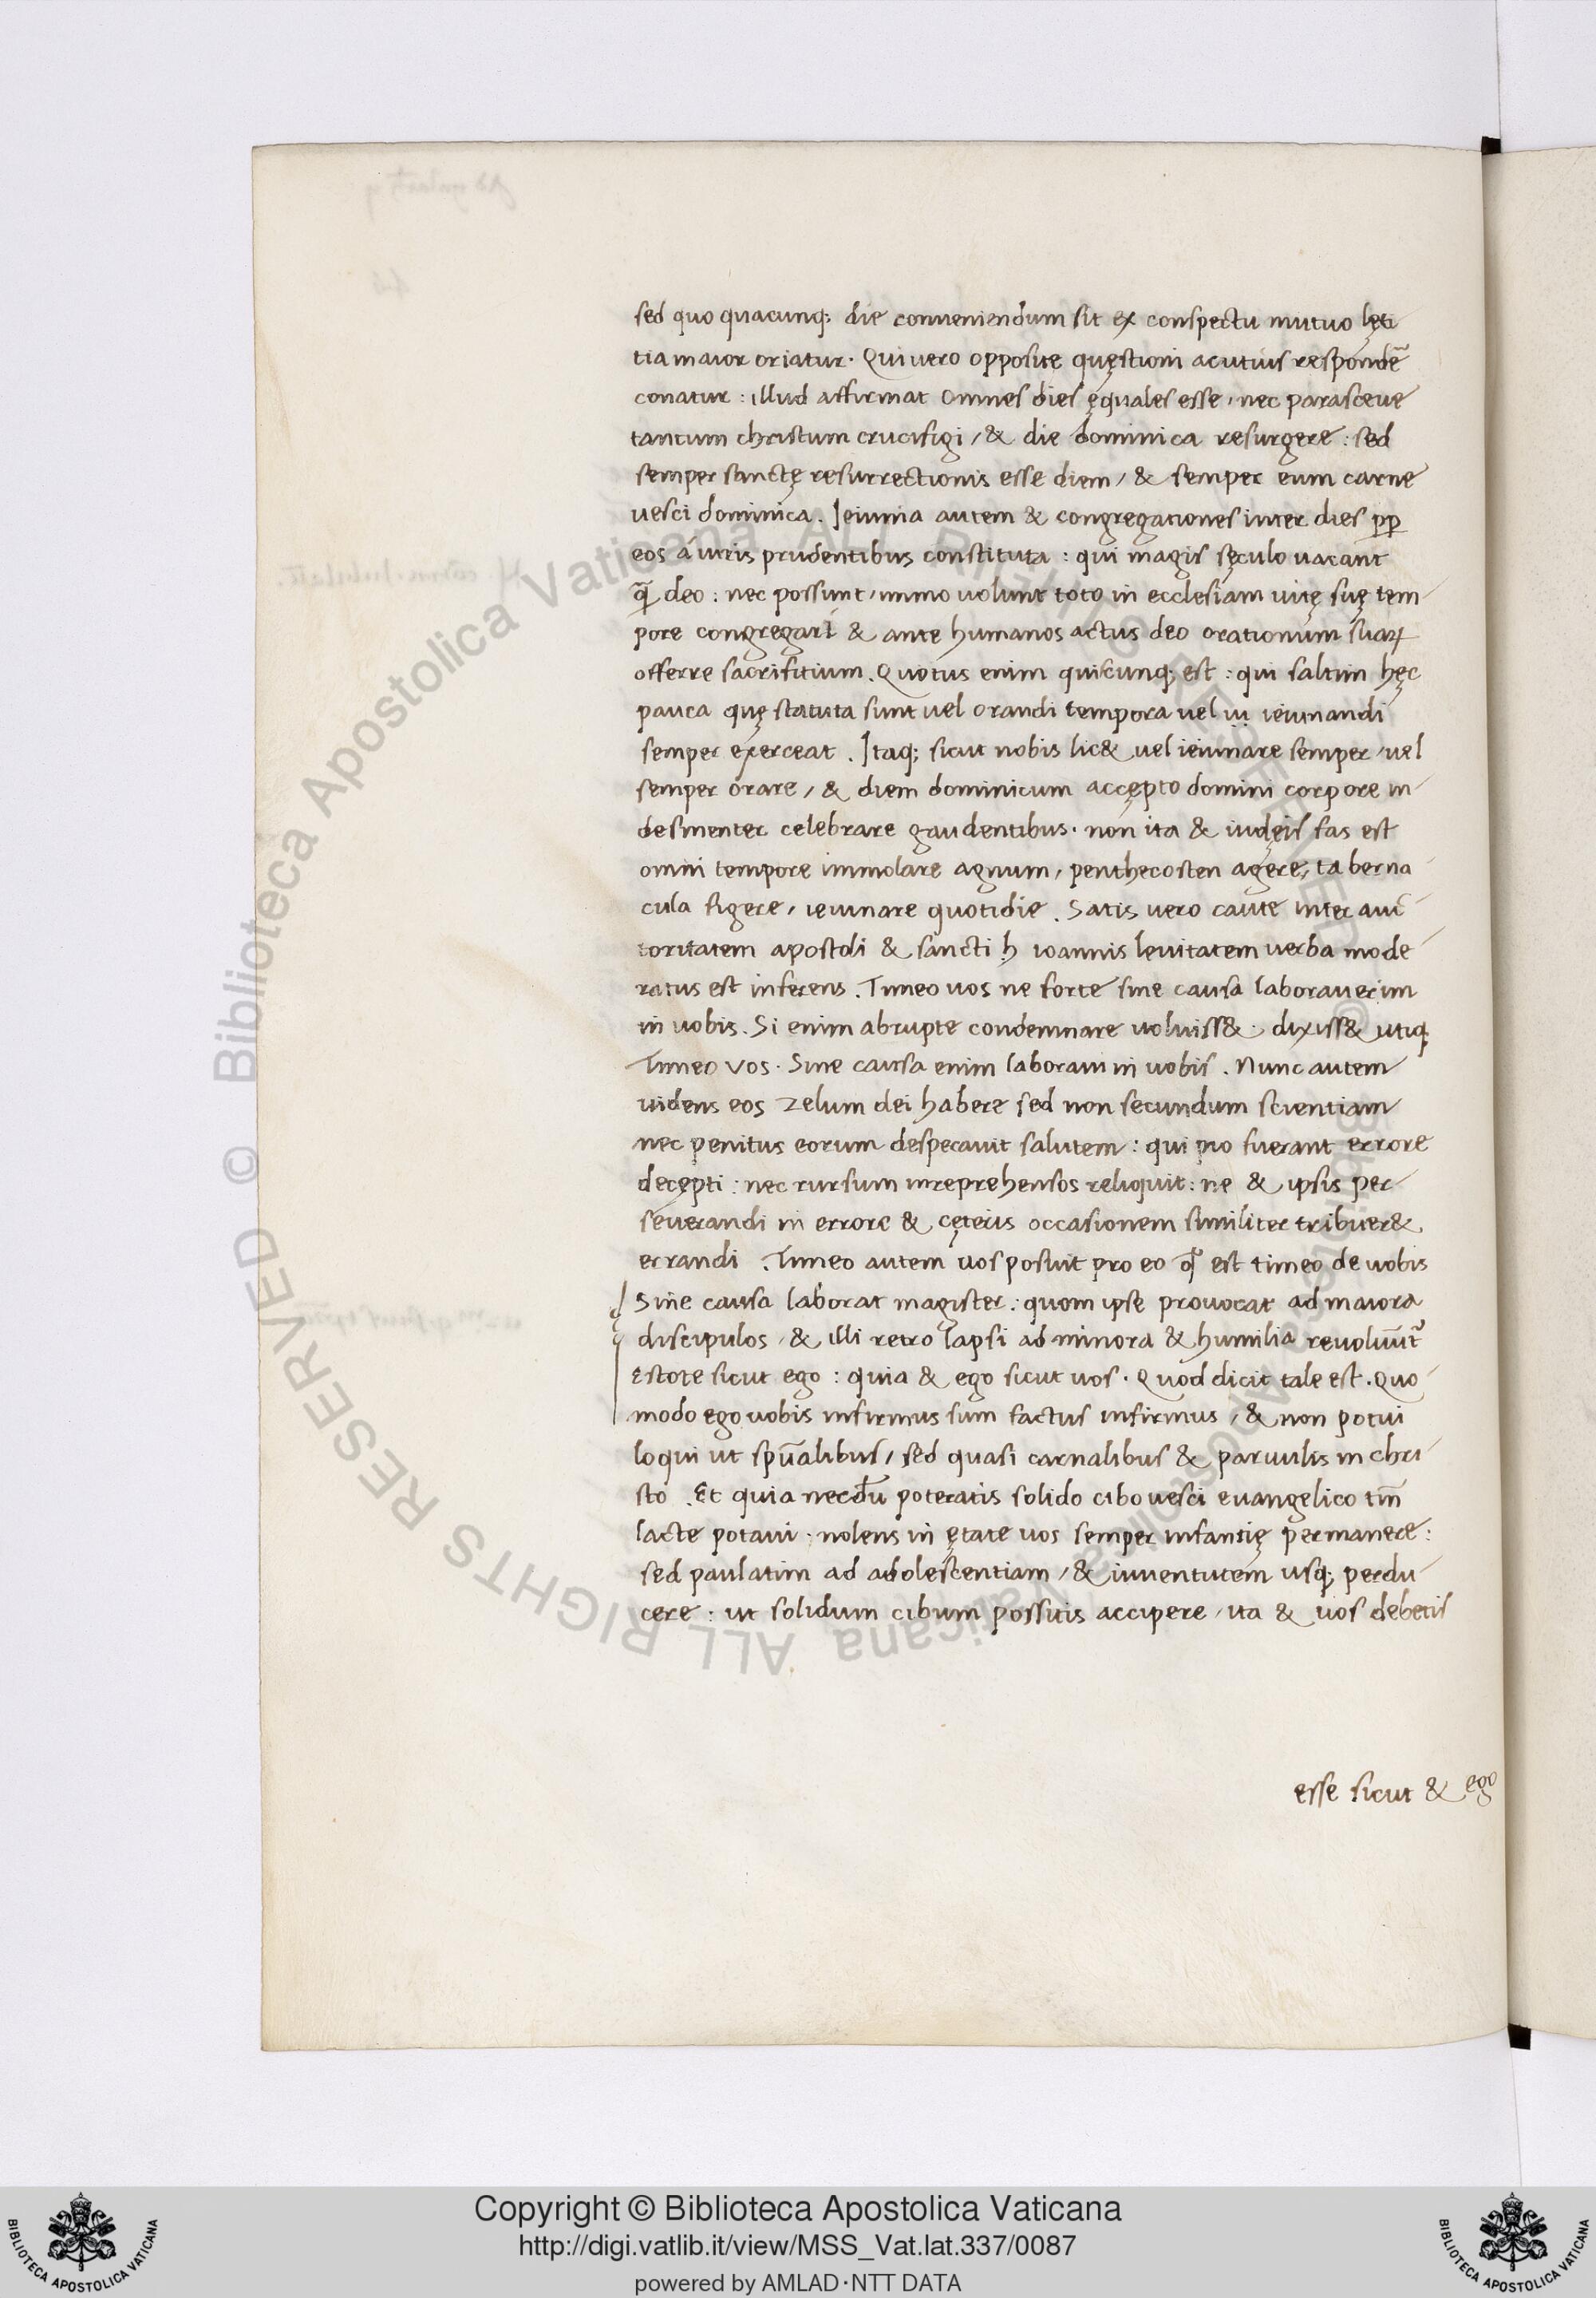 sed quo quacunq; die conueniendum sit ex conspectu mutuo lęti
tia maior oriatur. Qui vero opposite quęstioni acutius respondē
conatur : illud affirmat omnes dies ęquales esse, nec parasceue
tantum christum crucifigi, & die dominica resurgere : sed
semper sanctę resurrectionis esse diem, & semper eum carne
uesci dominica. Ieiunia autem & congregationes inter dies ꝓꝑ
eos á uiris prudentibus constituta : qui magis sęculo uacant
q̄ deo : nec possunt, immo uolunt toto in ecclesiam uitę suę tem
pore congregari & ante humanos actus deo orationum suaꝝ
offerre sacrifitium. Quotus enim quiscunq; est : qui saltim hęc
pauca quę statuta sunt uel orandi tempora uel ieiunandi
semper exerceat. Itaq; sicut nobis lic& uel ieiunare semper, uel
semper orare, & diem dominicum accępto domini corpore in
desinenter celebrare gaudentibus. non ita & iudęis fas est
omni tempore immolare agnum, penthecosten agere, taberna
cula figere, ieiunare quotidie. Satis uero caute inter auc
toritatem apostoli & sancti h ioannis leuitatem uerba mode
ratus est inferens. Timeo uos ne forte sine causa laborauerim
in uobis. Si enim abrupte condemnare uoluiss& : dixiss& utiq;
Timeo vos. Sine causa enim laboraui in uobis. Nunc autem
uidens eos zelum dei habere sed non secundum scientiam
nec penitus eorum desperauit salutem : qui pio fuerant errore
decępti : nec rursum inreprehensos relioquit : ne & ipsis per
seuerandi in errore & cęteris occasionem similiter tribuer&
errandi. Timeo autem uos posuit pro eo qđ est timeo de uobis
Sine causa laborat magister : quom ipse prouocat ad maiora
discipulos, & illi retro lapsi ad minora & humilia reuoluūt᷑
Estote sicut ego : quia & ego sicut uos. Quod dicit tale est. Quo
modo ego uobis infirmus sum factus infirmus, & non potui
loqui ut spūalibus, sed quasi carnalibus & paruulis in chri
sto. Et quia necdū poteratis solido cibo uesci euangelico tm̄
lacte potaui : nolens in ętate uos semper infantię permanere :
sed paulatim ad adolescentiam, & iuuentutem usq; perdu
cere : ut solidum cibum possitis accipere, ita & uos debetis
esse sicut & ego
© Biblioteca Apostolica Vaticana ALL RIGHTS RESERVED
Copyright © Biblioteca Apostolica Vaticana
http://digi.vatlib.it/view/MSS_Vat.lat.337/0087
powered by AMLAD·NTT DATA
BIBLIOTECA APOSTOLICA VATICANA
BIBLIOTECA APOSTOLICA VATICANA